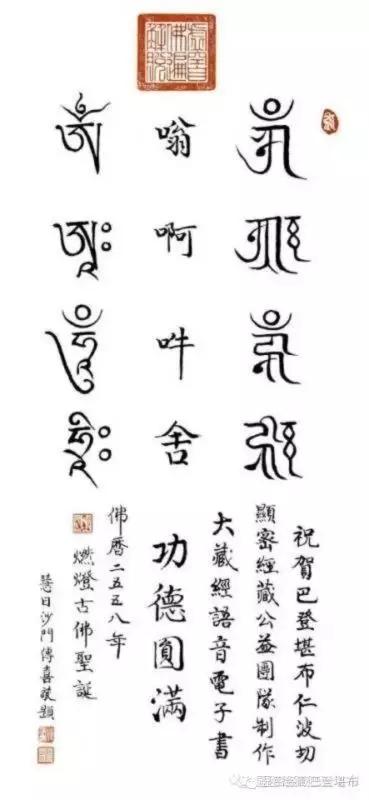 嗡
啊
吽
舍
ཨོཾ
ཨཱཿ
ཧཱུྃ
ཧྲཱིཿ
祝賀巴登堪布仁波切
顯密經藏公益團隊制作
大藏經語音電子書
功德圓滿
佛曆二五五八年
燃燈古佛聖誕
慧日沙門傳喜敬題
巴登堪布